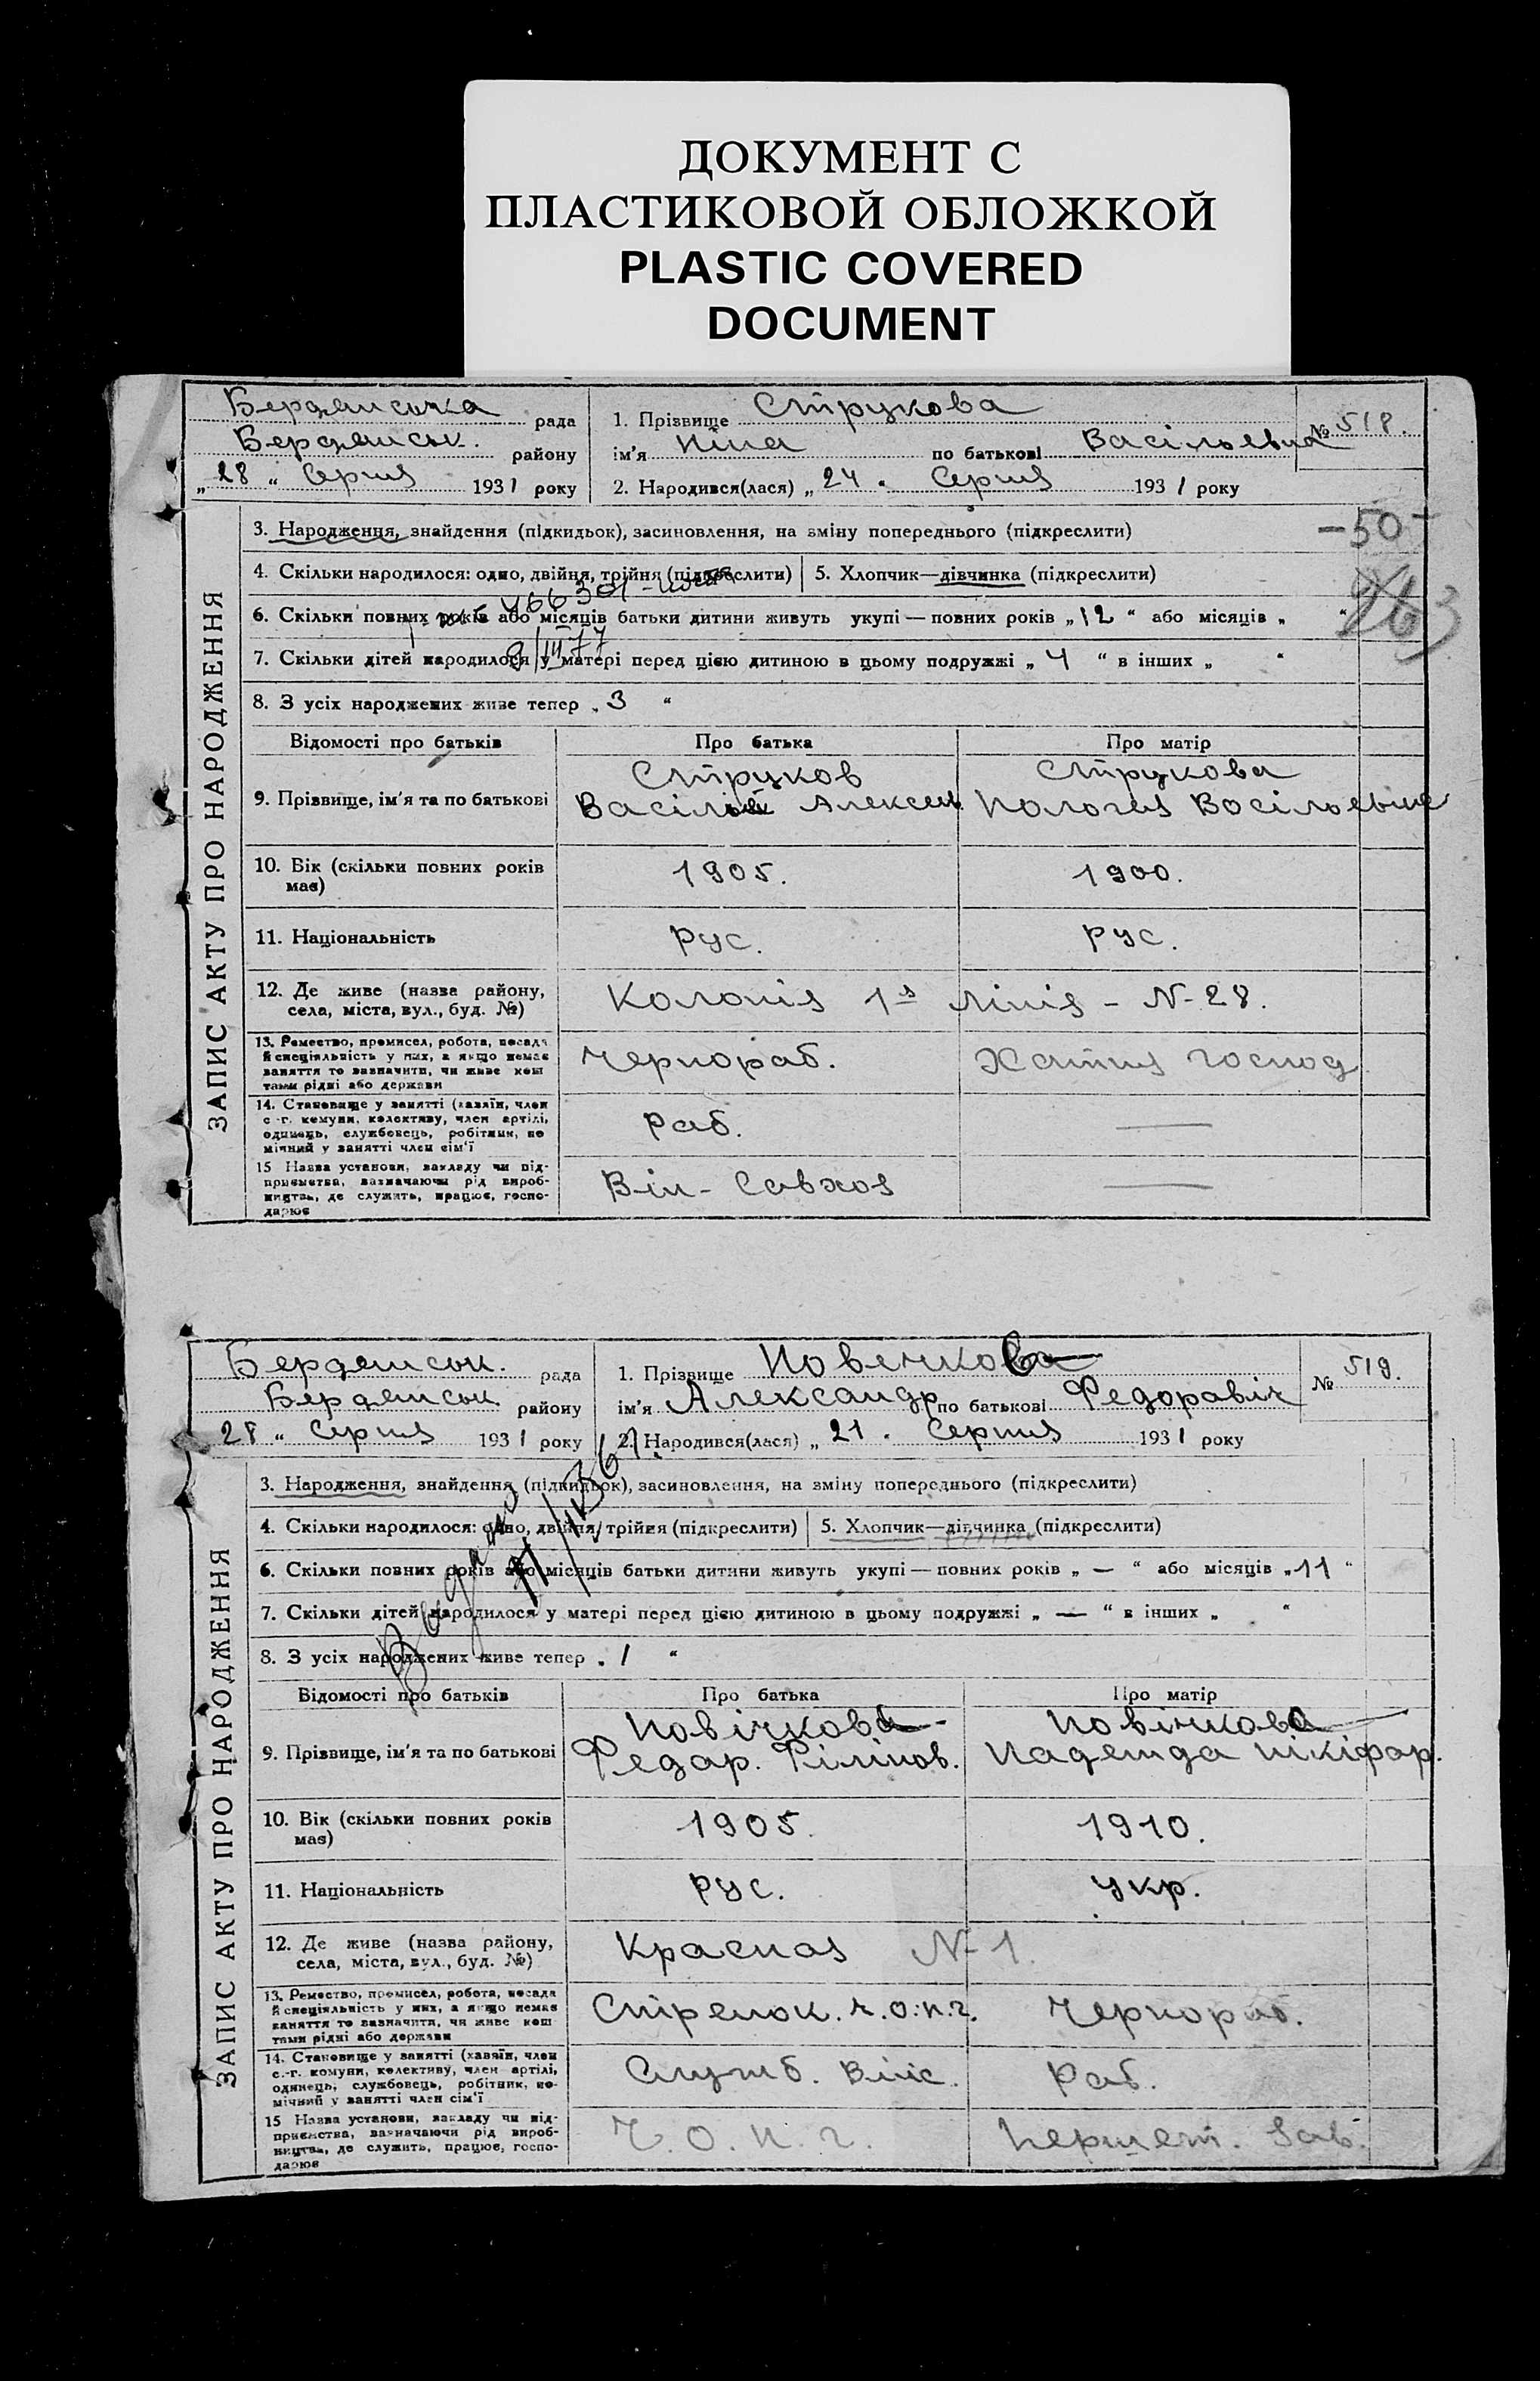 ДОКУМЕНТ С
ПЛАСТИКОВОЙ ОБЛОЖКОЙ
PLASTIC COVERED
DOCUMENT
Бердянська рада
Бердянськ. району
„28“ Серпня 1931 року
1. Прізвище Струкова
ім'я Ніна по батькові Васільевна
№ 518.
2. Народився(лася) „24“ Серпня 1931 року
ЗАПИС АКТУ ПРО НАРОДЖЕННЯ
3. Народження, знайдення (підкидьок), засиновлення, на зміну попереднього (підкреслити)
–50–
4. Скільки народилося: одно, двійня, трійня (підкреслити) 5. Хлопчик—дівчинка (підкреслити)
6. Скільки повних років або місяців батьки дитини живуть укупі — повних років „12“ або місяців „ “
7. Скільки дітей народилося у матері перед цією дитиною в цьому подружжі „4“ в інших „ “
8. З усіх народжених живе тепер „3“
Відомості про батьків Про батька Про матір
9. Прізвище, ім'я та по батькові
Струков
Васілій Алексеев.
Струкова
Пологея Васільевне
10. Вік (скільки повних років має) 1905. 1900.
11. Національність рус. рус.
12. Де живе (назва району, села, міста, вул., буд. №) Колонія 1я лінія – N- 28.
13. Ремество, промисел, робота, посада й спеціяльність у них, а якщо немає заняття то зазначити, чи живе коштами рідні або держави Чернораб. Хатня господ
14. Становище у занятті (хазяїн, член с.-г. комуни, колективу, член артілі, одинець, службовець, робітник, помічний у занятті член сім'ї Раб. —
15 Назва установи, закладу чи підприємства, вазначаючи рід виробництва, де служить, працює, господарює Він- Савхоз —
Бердянськ. рада
Бердянськ району
28 “ Серпня 1931 року
1. Прізвище Новичкова
ім'я Александр по батькові Федоравіч
№ 519.
2. Народився(лася) „21“ Серпня 1931 року
ЗАПИС АКТУ ПРО НАРОДЖЕННЯ
3. Народження, знайдення (підкидьок), засиновлення, на зміну попереднього (підкреслити)
4. Скільки народилося: одно, двійня, трійня (підкреслити) 5. Хлопчик—дівчинка (підкреслити)
6. Скільки повних років або місяців батьки дитини живуть укупі — повних років „—“ або місяців „11“
7. Скільки дітей народилося у матері перед цією дитиною в цьому подружжі „—“ в інших „ “
8. З усіх народжених живе тепер „1“
Відомості про батьків Про батька Про матір
9. Прізвище, ім'я та по батькові
Новічкова
Федар. Філіпов.
Новічкова
Надежда Нікіфар.
10. Вік (скільки повних років має) 1905. 1910.
11. Національність рус. укр.
12. Де живе (назва району, села, міста, вул., буд. №) Красная N- 1.
13. Ремество, промисел, робота, посада й спеціяльність у них, а якщо немає заняття то зазначити, чи живе коштами рідні або держави Стрелок. Ч.О.П.Г. Чернораб.
14. Становище у занятті (хазяїн, член с.-г. комуни, колективу, член артілі, одинець, службовець, робітник, помічний у занятті член сім'ї Служб. Раб.
15 Назва установи, закладу чи підприємства, вазначаючи рід виробництва, де служить, працює, господарює Ч.О.П.Г.